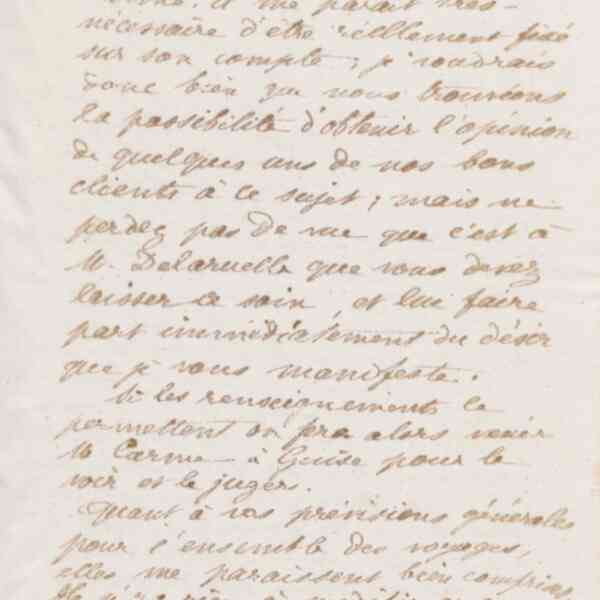 il me parait très-
nécessaire d'être réellement fixé
sur son compte ; je voudrais
donc bien que nous trouvions
la possibilité d'obtenir l'opinion
de quelques uns de nos bons
clients à ce sujet ; mais ne
perdez pas de vue que c'est à
M. Delaruelle que vous devez
laisser ce soin, et lui faire
part immédiatement du désir
que je vous manifeste.
Si les renseignements le
permettent on fera alors venir
M. Carme à Guise pour le
voir et le juger.
Quant à vos prévisions générales
pour l'ensemble des voyages,
elles me paraissent bien comprises.